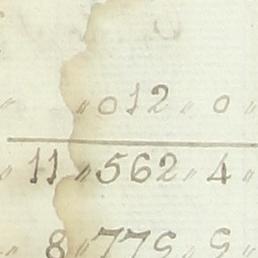 " 012 " 0 "
" 11 " 562 " 4 "
" 8 " 775 " 5 "